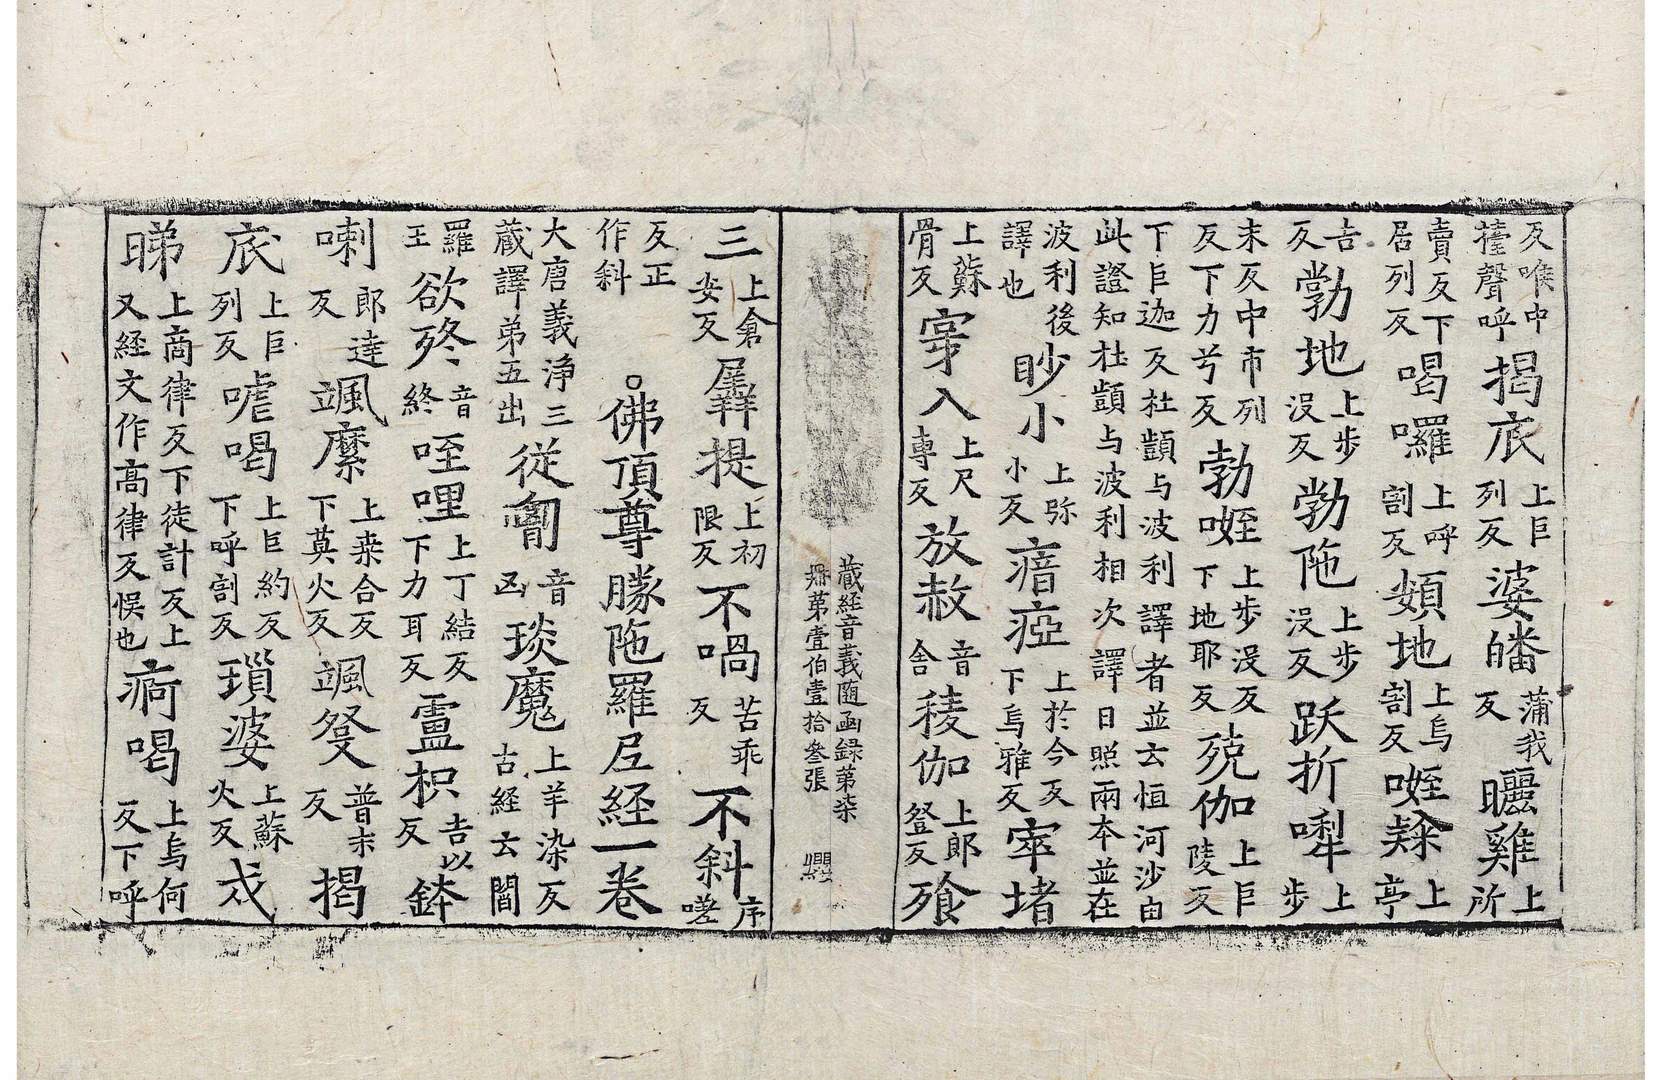 反喉中𡃤聲呼揭底上巨列反婆皤蒲我反䮥雞上所
賣反下居列反喝囉上呼割反頞地上烏割反㗌𣩠上亭
吉反㔜地上步沒反㔜陁上步沒反跃折㗚上步
末反中市列反下力兮反勃㗌上步沒反下地耶反殑伽上巨陵反
下巨迦反杜顗与波利譯者並云恒河沙由此證知杜顗与波利相次譯日照兩本並在
波利後譯也眇小上弥小反瘖瘂上於今反下烏雅反窣堵
上蘇骨反穿入上尺專反放赦音舍稜伽上郎登反飱
藏經音義隨函録第柒
冊第壹伯壹拾叄張
三上倉安反羼提上初限反不喎苦乖反不斜序嗟
反正作斜○佛頂尊勝陁羅尼經一卷
大唐義淨三藏譯弟五出從匈音凶琰魔上羊染反古経云閻
羅王欲終音終咥哩上丁結反下力耳反盧枳吉以反鉢
喇郎達反颯縻上桒合反下莫火反颯發普末反揭
底上巨列反噱喝上巨約反下呼割反瑣婆上蘇火反戍
睇上商律反下徒計反上又経文作高律反悮也痾喝上烏何反下呼